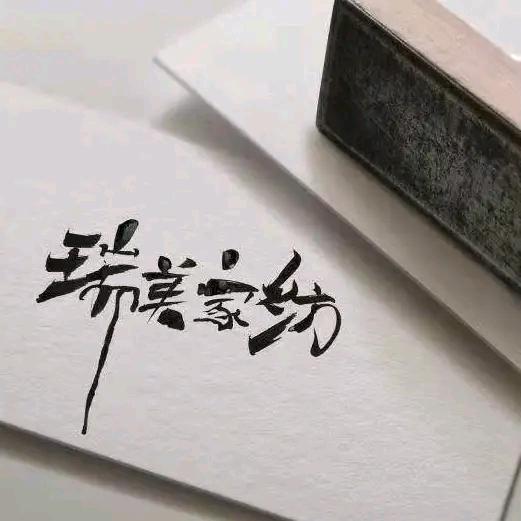 瑞美家纺